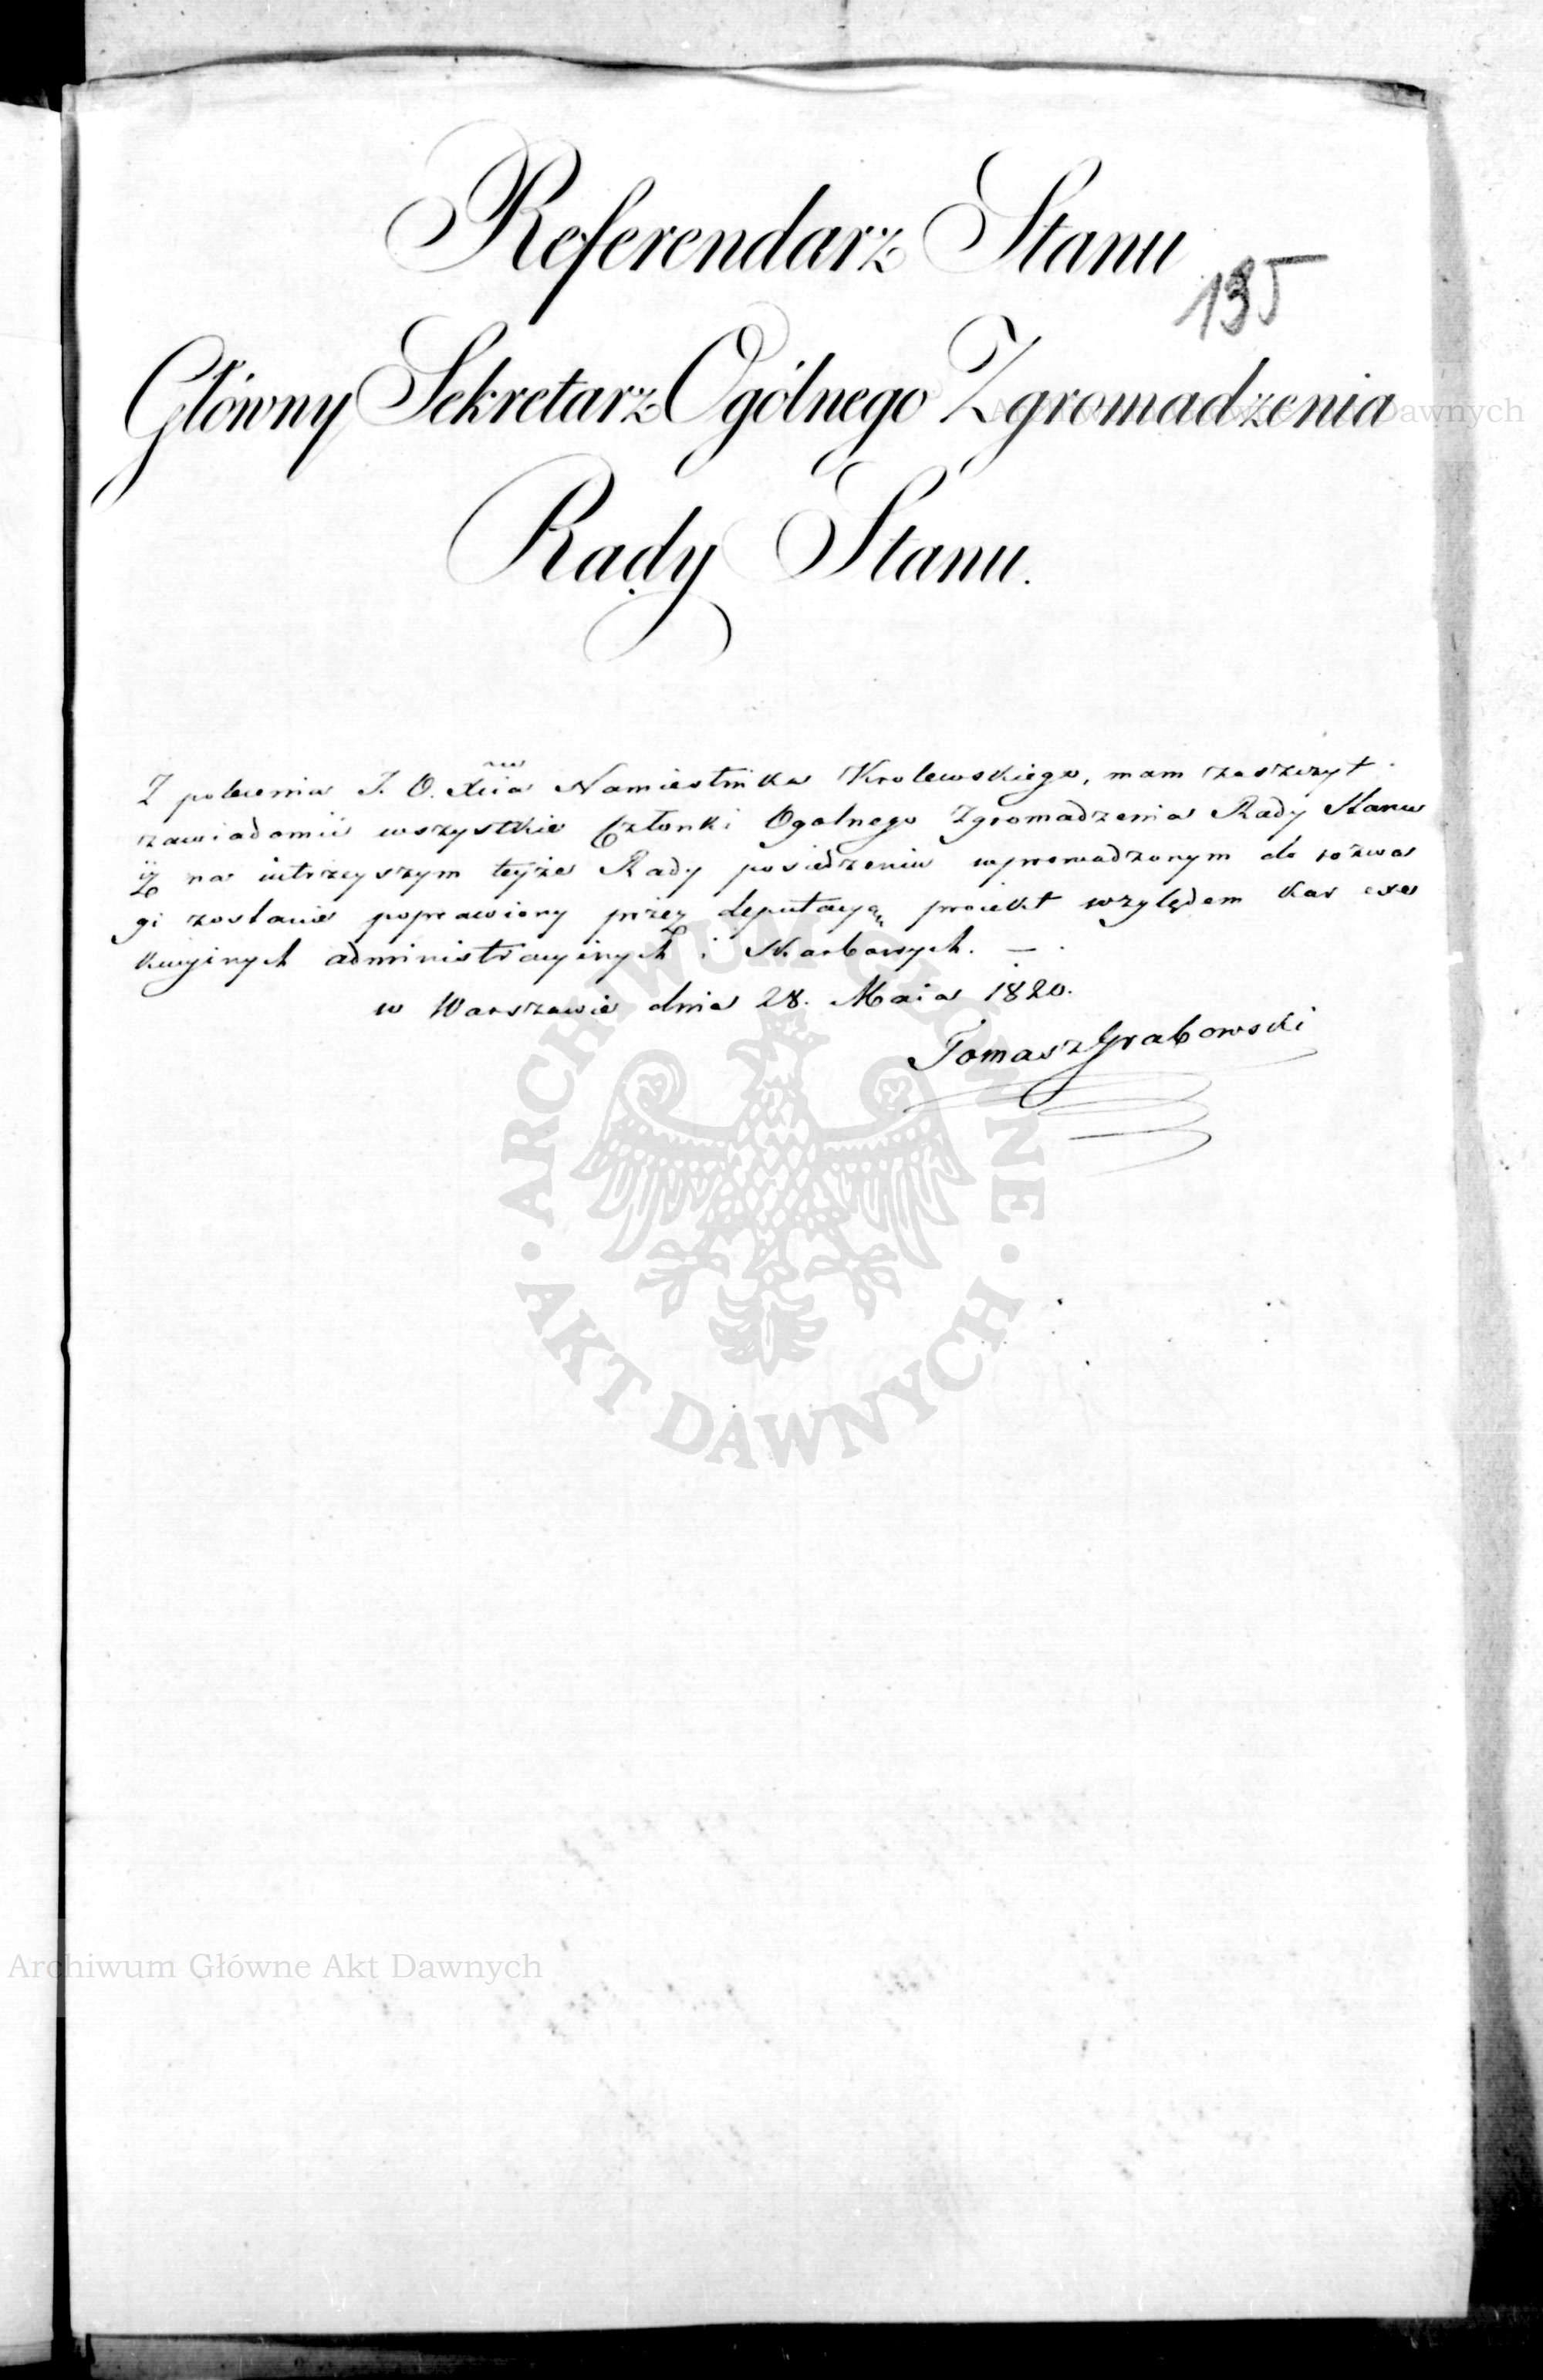 Referendarz Stanu
195
Główny Sekretarz Ogólnego Zgromadzenia
Archiwum Główne Akt Dawnych
Rady Stanu.
Z polecenia J. O. Xcia Namiestnika Krolewskiego, mam zaszczyt
zawiadomić wszystkie Członki Ogolnego Zgromadzenia Rady Stanu
iż na iutrzeyszym teyże Rady posiedzeniu wprowadzonym do rozwa
gi zostanie poprawiony przez deputacyą proiekt względem kar exe
kucyinych administracyinych i Skarbowych. —
w Warszawie dnia 28. Maia 1820.
Tomasz Grabowski
ARCHIWUM GŁÓWNE
AKT DAWNYCH
Archiwum Główne Akt Dawnych